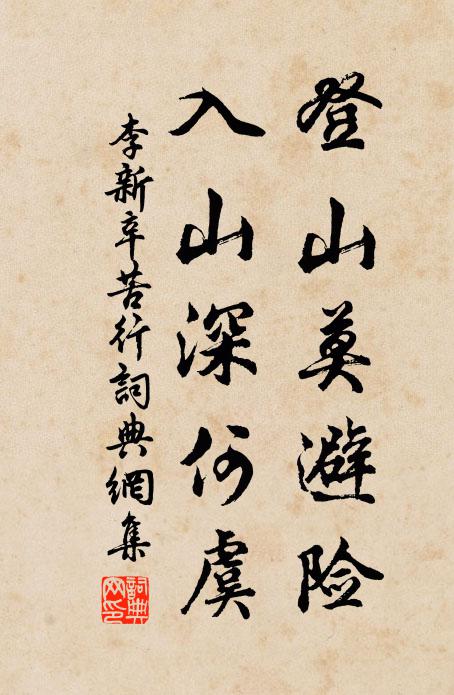 登山莫避险
入山深何虞
李新辛苦行詞典網集
詞典網印